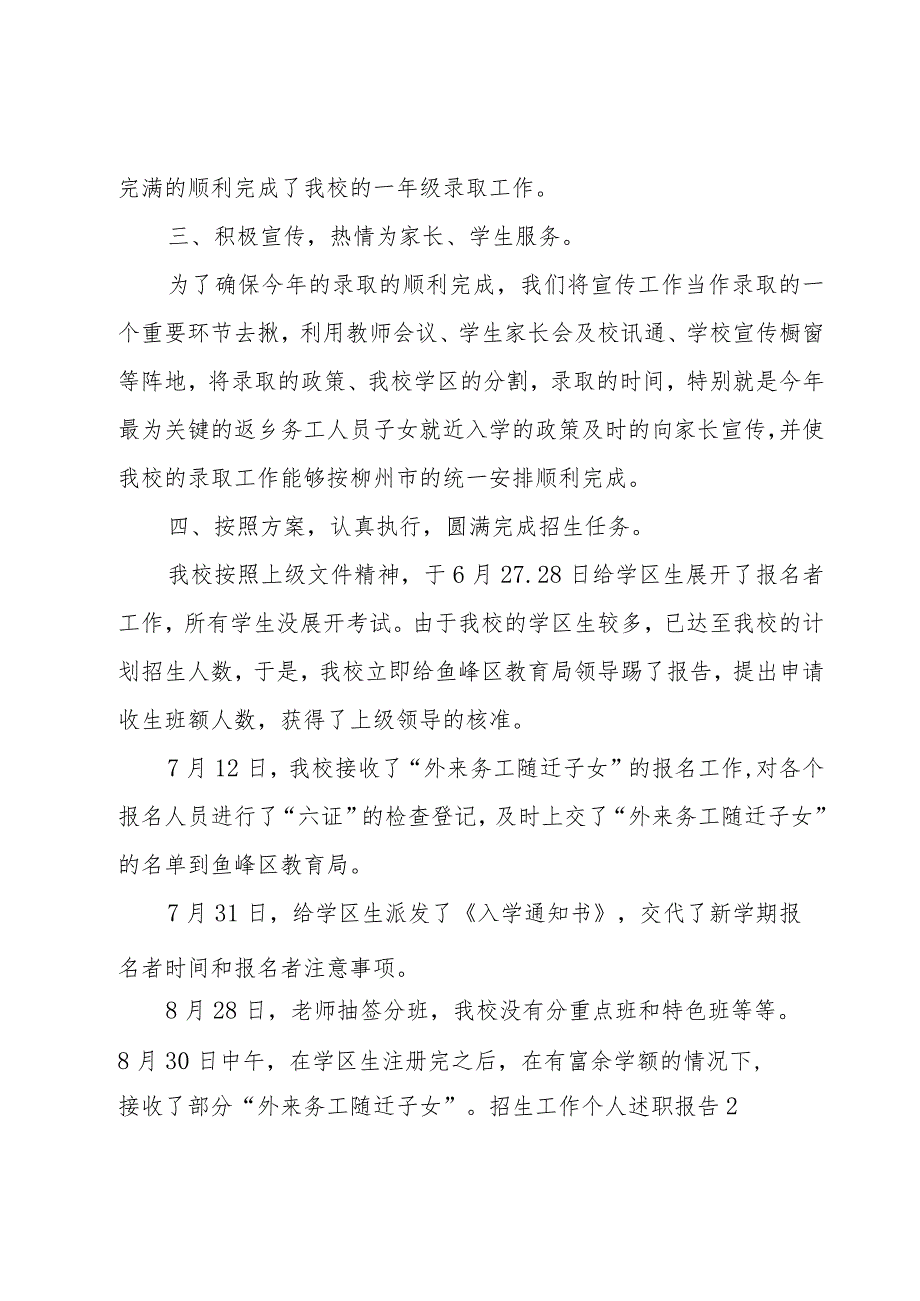 完满的顺利完成了我校的一年级录取工作。
三、积极宣传，热情为家长、学生服务。
为了确保今年的录取的顺利完成，我们将宣传工作当作录取的一
个重要环节去揪，利用教师会议、学生家长会及校讯通、学校宣传橱窗
等阵地，将录取的政策、我校学区的分割，录取的时间，特别就是今年
最为关键的返乡务工人员子女就近入学的政策及时的向家长宣传,并使
我校的录取工作能够按柳州市的统一安排顺利完成。
四、按照方案，认真执行，圆满完成招生任务。
我校按照上级文件精神，于 6 月 27.28 日给学区生展开了报名者
工作，所有学生没展开考试。由于我校的学区生较多，已达至我校的计
划招生人数，于是，我校立即给鱼峰区教育局领导踢了报告，提出申请
收生班额人数，获得了上级领导的核准。
7 月 12 日，我校接收了“外来务工随迁子女”的报名工作,对各个
报名人员进行了“六证”的检查登记，及时上交了“外来务工随迁子女”
的名单到鱼峰区教育局。
7 月 31 日，给学区生派发了《入学通知书》，交代了新学期报
名者时间和报名者注意事项。
8 月 28 日，老师抽签分班，我校没有分重点班和特色班等等。
8 月 30 日中午，在学区生注册完之后，在有富余学额的情况下，
接收了部分“外来务工随迁子女”。招生工作个人述职报告 2